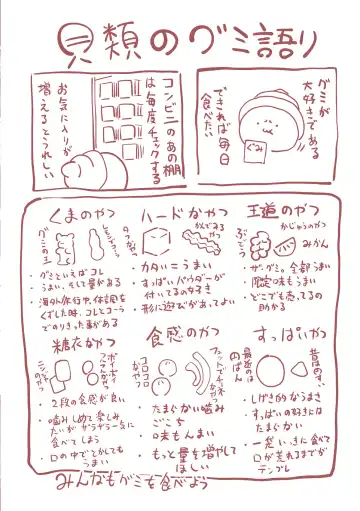 貝類のグミ語り
グミが
大好きである
できれば毎日
食べたい
ぐみ
コンビニのあの棚
は毎度チェックする
お気に入りが
増えるとうれしい
王道のやつ
かじゅうのやつ
ぶどう
みかん
・ザ・グミ。全部うまい
・限定味もうまい
・どこでも売ってるの
助かる
ハードなやつ
かんでるやつ
・カタい=うまい
・すっぱいパウダーが
付いてるの好き
・形に遊びがあってよい
くまのやつ
グミの王
・グミといえばコレ
・うまい、そして量がある
・海外旅行中、体調を
くずした時、コレとコーラ
でのりきった事がある
すっぱいやつ
・しげき的なうまさ
・すっぱいの好きは
たまかい
・一袋いっきに食べて
口が荒れるまでが
テンプレ
食感のやつ
コロコロ
なやつ
・たまらない噛み
ごこち
・味もんまい
・もっと量を増やして
ほしい
糖衣なやつ
・2段の食感が良い
・噛みしめて楽しみ
たいがザラザラ一気に
食べてしまう
・口の中でとかしても
うまい
みんなもグミを食べよう